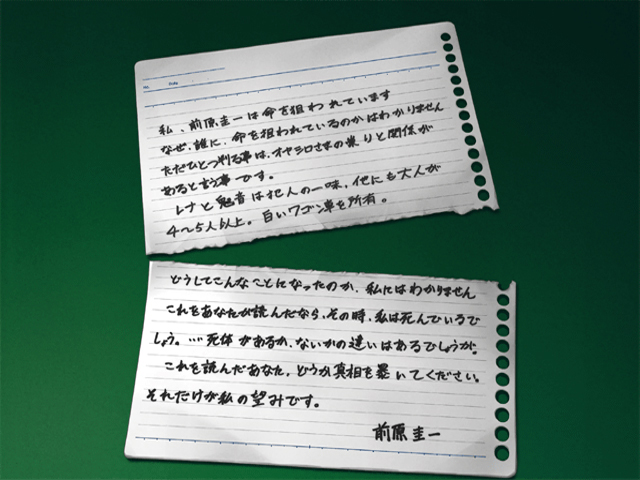 No. Date
私、前原圭一は命を狙われています
なぜ、誰に、命を狙われているのかはわかりません
ただひとつ判る事は、オヤシロさまの祟りと関係が
あると言う事です。
レナと魅音は犯人の一味。他にも大人が
4〜5人以上。白いワゴン車を所有。
どうしてこんなことになったのか、私にはわかりません
これをあなたが読んだなら、その時、私は死んでいるで
しょう。…死体があるか、ないかの違いはあるでしょうが。
これを読んだあなた。どうか真相を暴いてください。
それだけが私の望みです。
前原圭一